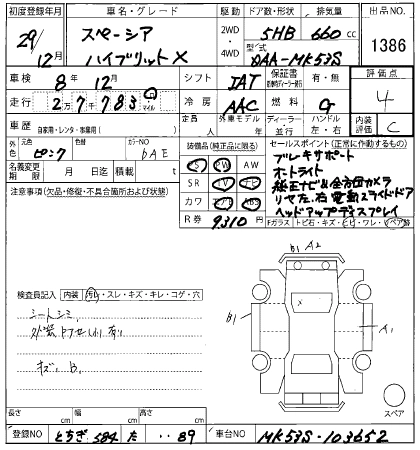 初度登録年月
29/12月
車名・グレード
スペーシア
ハイブリットX
駆動
2WD
4WD
ドア数・形状
5HB
排気量
660cc
型式
DAA-MK53S
出品NO
1386
車検
8年12月
シフト
IAT
保証書
有・無
評価点
4
走行
27783
km
マイル
冷房
AAC
燃料
G
車歴
自家用・レンタ・事業用( )
定員
人
外車モデル
年
ディーラー
並行
ハンドル
左・右
内装評価
C
外色
元色
ピンク
色替
カラーNO
bAE
名義変更期限
月
日迄
積載量
t
装備品(純正品に限る)
PS PW AW
SR TV ナビ
カワ エアB ABS
R券
9310円
セールスポイント(正常に作動するもの)
ブレーキサポート
オートライト
純正ナビ&全方囲カメラ
リヤ左、右電動スライドドア
ヘッドアップディスプレイ
Fガラス
トビ石・キズ・ヒビ・ワレ・リペア跡
注意事項(欠品・修復・不具合箇所および状態)
検査員記入
内装
汚れ・スレ・キズ・キレ・コゲ・穴
シートシミ
キズ、B
B1 A2
B1
X
A1
スペア
長さ
cm
幅
cm
高さ
cm
登録NO
とちぎ 584 た ・・89
車台NO
MK53S-103652